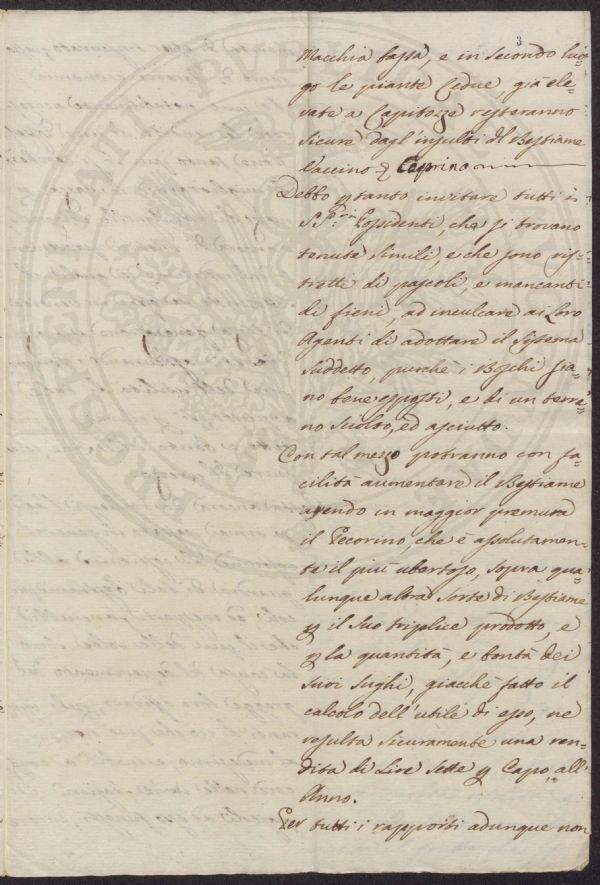 3
Macchia bassa, e in secondo luo=
go le piante Cedue, già ele=
vate a Capitozze resteranno
sicure dagl'insulti del Bestiame
Vaccino e Caprino
Debbo p tanto invitare tutti i
SS.ri Possidenti, che si trovano
tenute simili, e che sono ris=
tretti di pascoli, e mancanti
di fieni, ad inculcare ai Loro
Agenti di adottare il Sistema
suddetto, purchè i Boschi sia=
no bene esposti, e di un terre=
no sciolto, ed asciutto.
Con tal mezzo potranno con fa=
cilità aumentare il Bestiame
avendo in maggior premura
il Pecorino, che è assolutamen=
te il più ubertoso, sopra qua=
lunque altra sorte di Bestiame
p il suo triplice prodotto, e
p la quantità, e bontà dei
suoi sughi, giacchè fatto il
calcolo dell'utile di esso, ne
resulta sicuramente una ren=
dita di Lire sette p Capo, all'
Anno.
Per tutti i rapporti adunque non
PROSPERITATI PUBLICAE